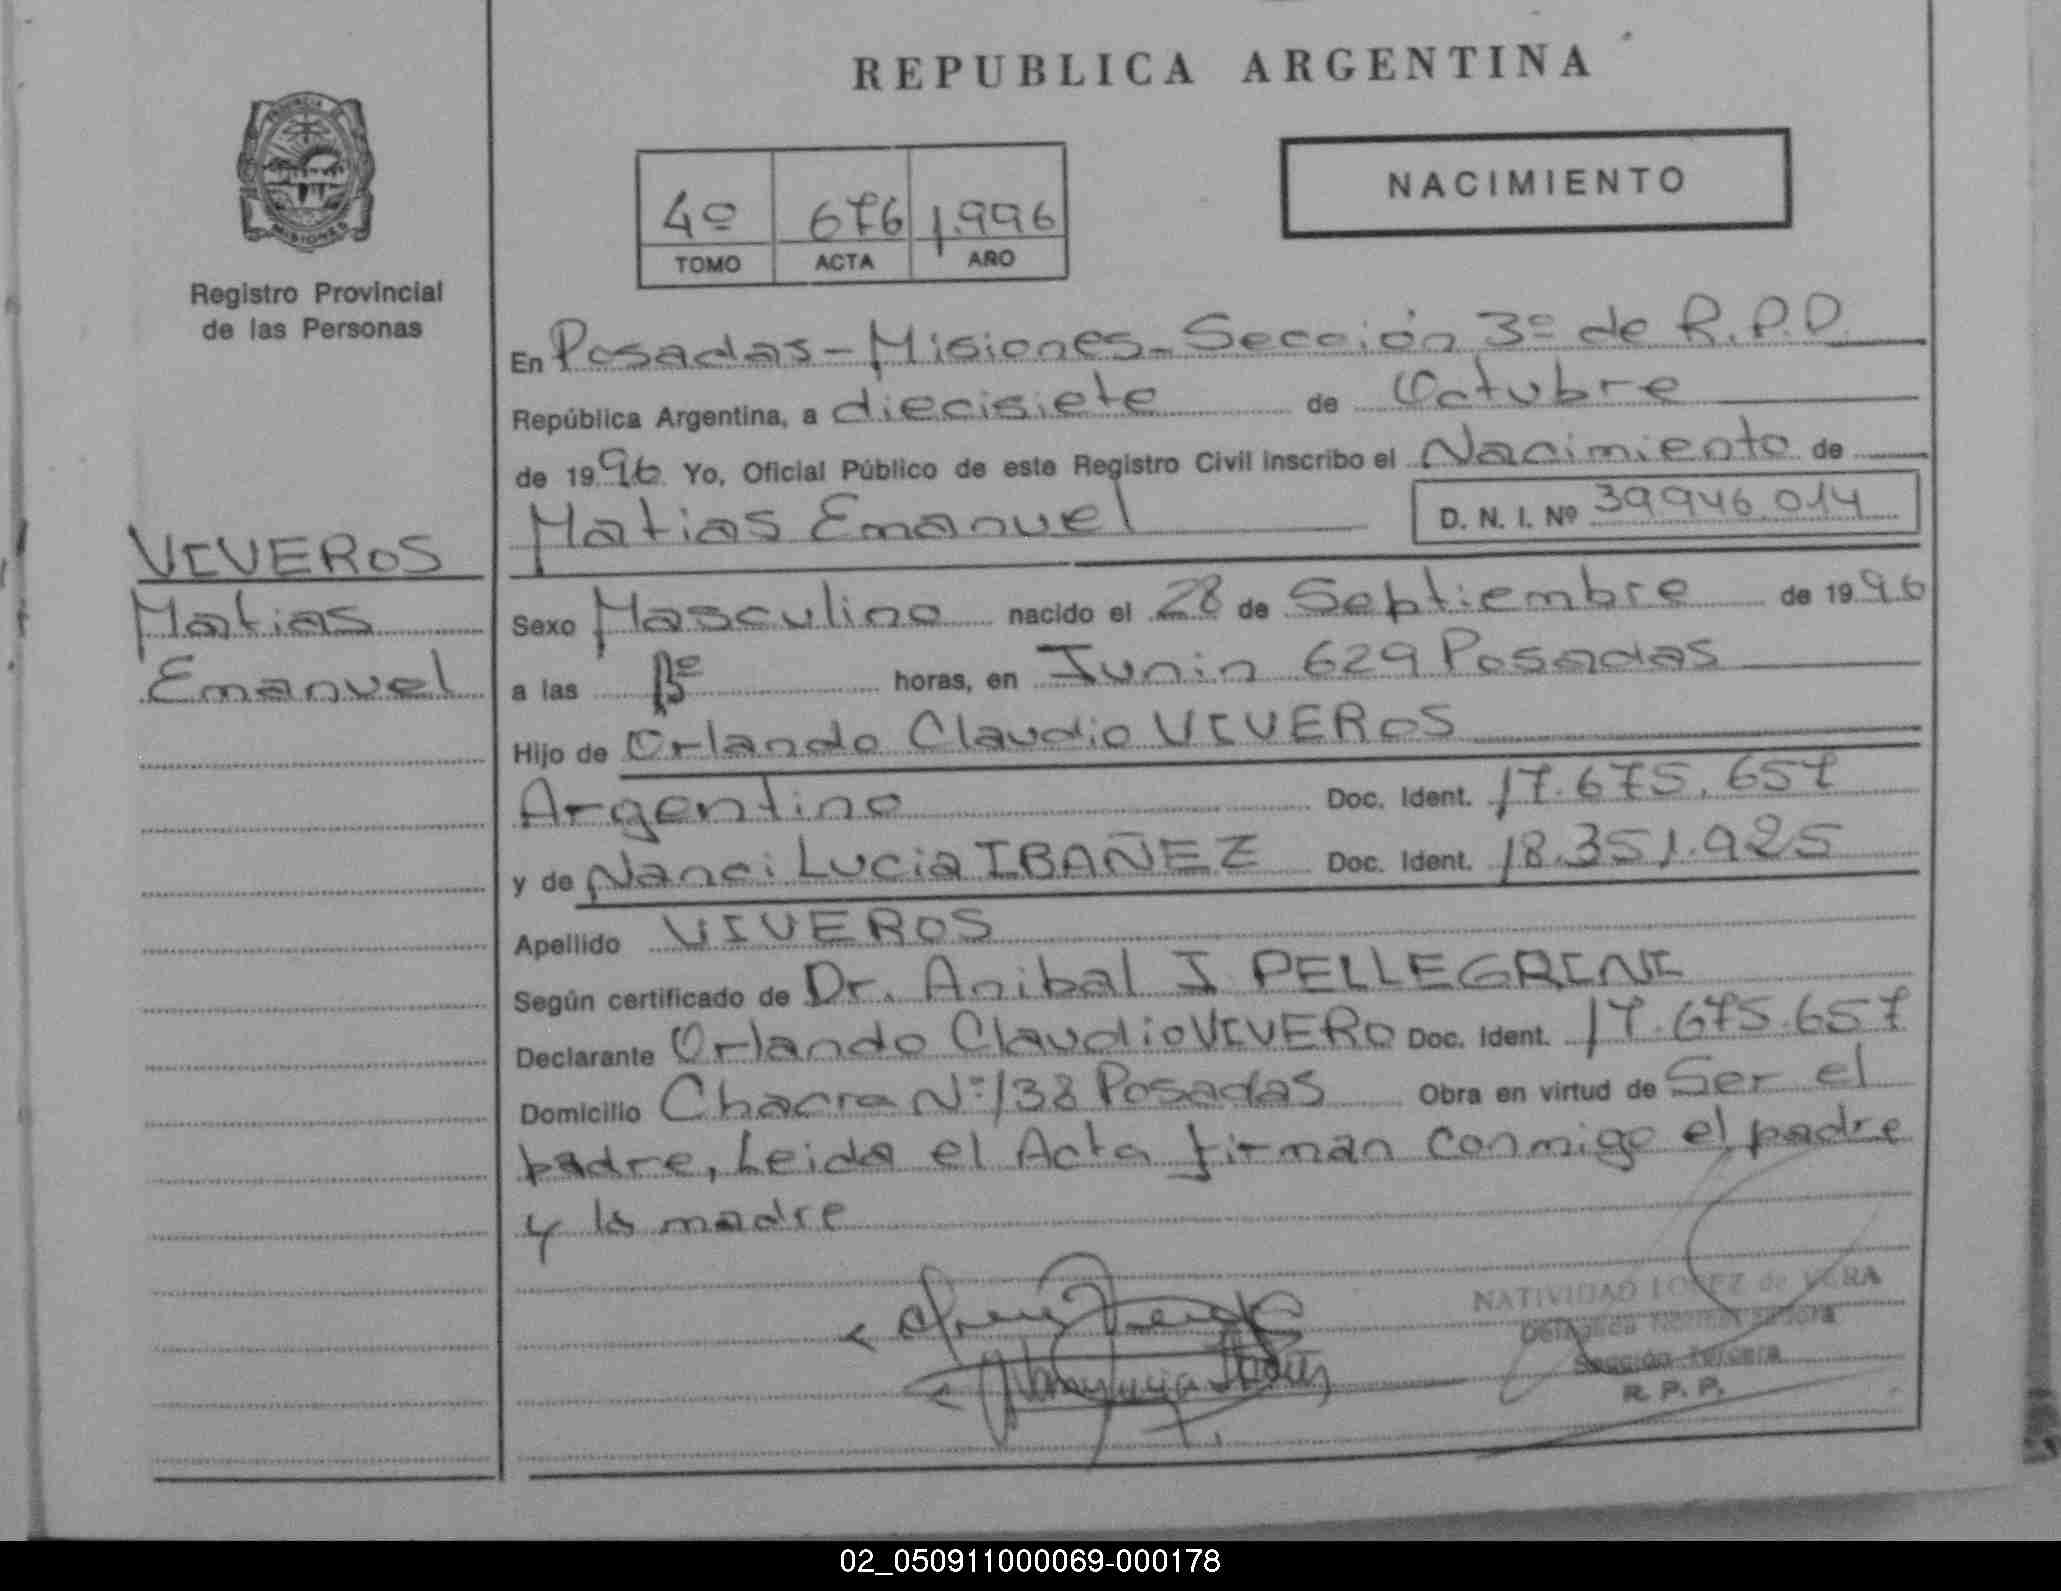 REPUBLICA ARGENTINA
PROVINCIA
MISIONES
Registro Provincial
de las Personas
4º 676 1.996
TOMO ACTA AÑO
NACIMIENTO
En Posadas - Misiones - Sección 3º de R.P.P.
República Argentina, a diecisiete de Octubre
de 1996 Yo, Oficial Público de este Registro Civil inscribo el Nacimiento de
Matias Emanuel D. N. I. Nº 39946.014
VIVEROS
Matias
Emanuel
Sexo Masculino nacido el 28 de Septiembre de 1996
a las horas, en Junin 629 Posadas
Hijo de Orlando Claudio VIVEROS
Argentino Doc. Ident. 17.675.657
y de Nanci Lucia IBAÑEZ Doc. Ident. 18.351.925
Apellido VIVEROS
Según certificado de Dr. Anibal I PELLEGRINI
Declarante Orlando Claudio VIVERO Doc. Ident. 17.675.657
Domicilio Chacra Nº 138 Posadas Obra en virtud de Ser el
padre, Leida el Acta firman conmigo el padre
y la madre
NATIVIDAD LOPEZ de VERA
Delegada Normalizadora
Sección Tercera
R. P. P.
02_050911000069-000178